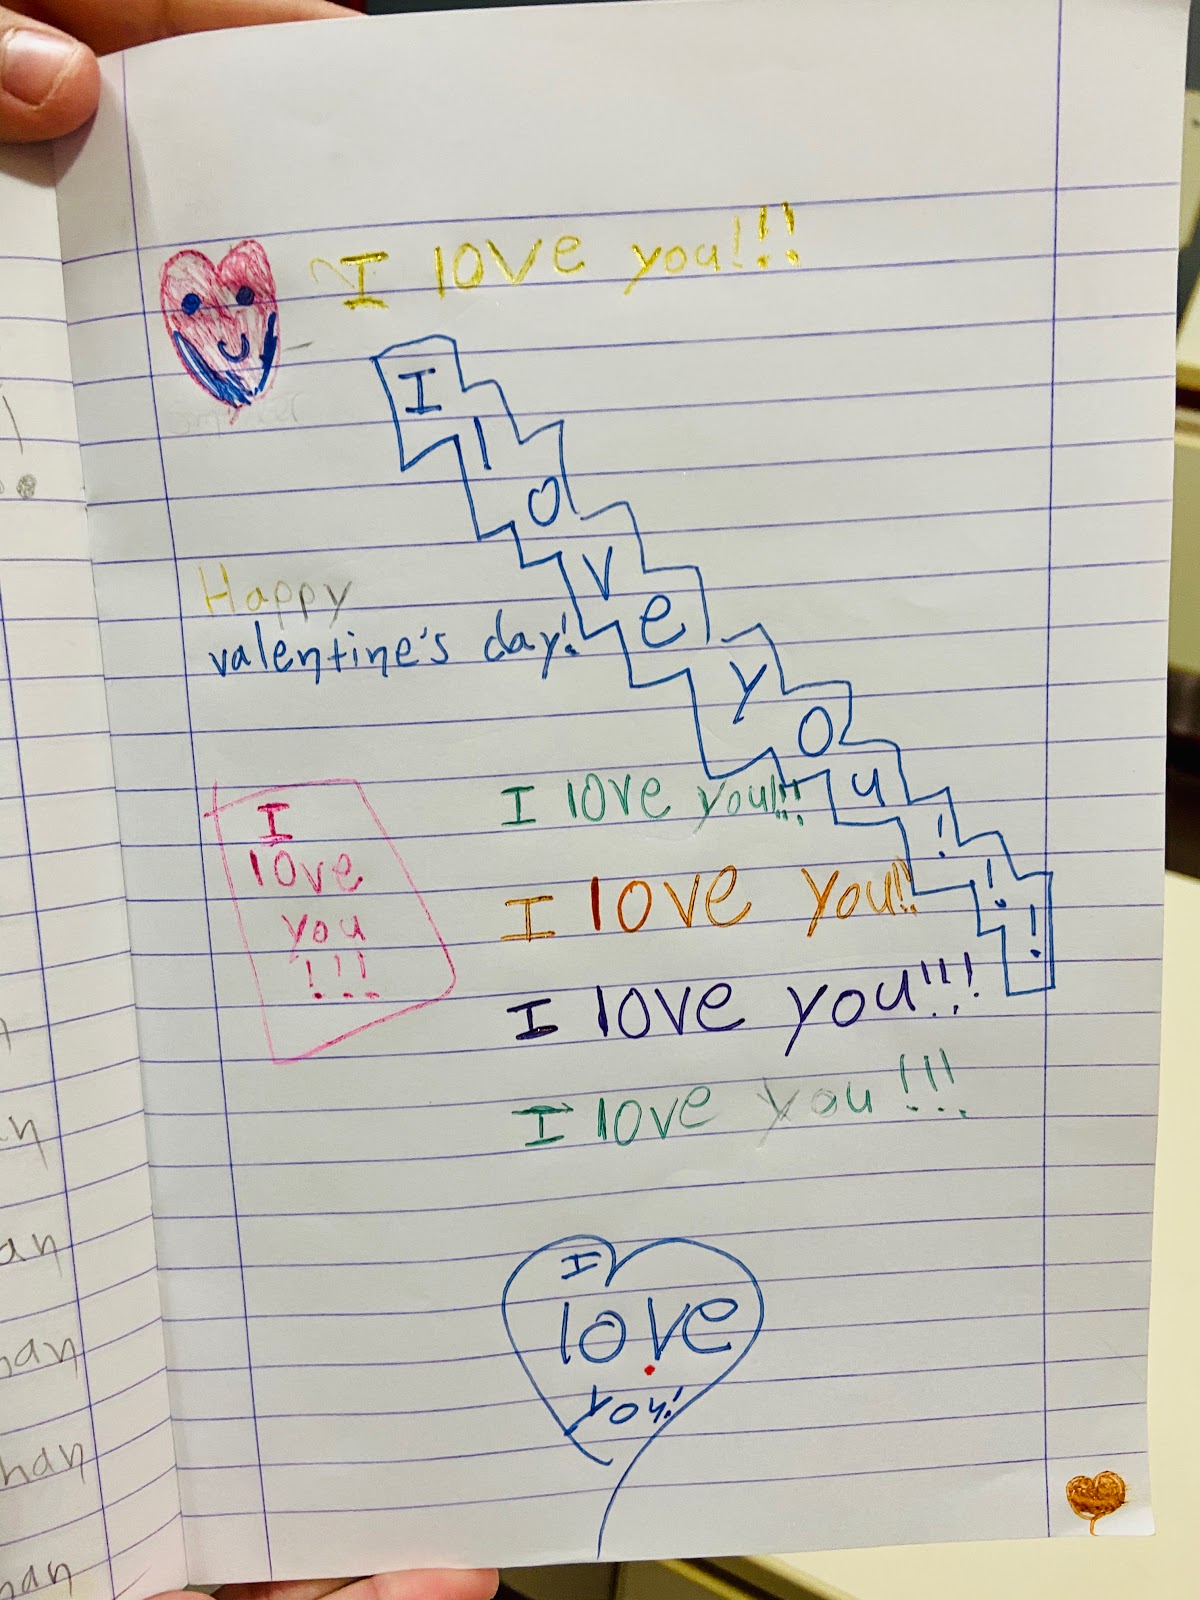 I love you!!!
I love you!!!
Happy
valentine's day!
I love you!!!
I
love
you
!!!
I love you!!
I love you!!!
I love you!!!
I
love
you!